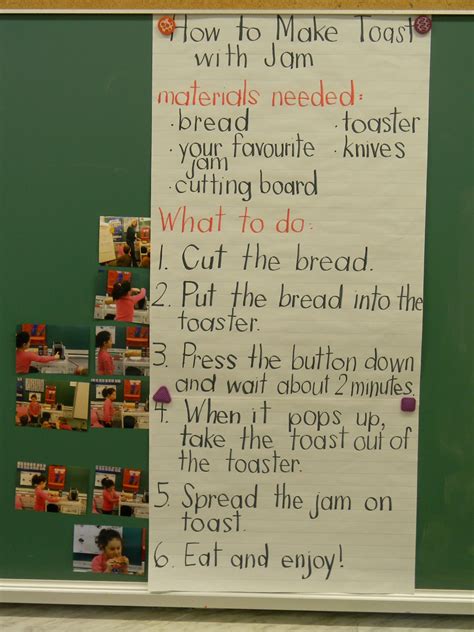 How to Make Toast
with Jam
materials needed:
· bread · toaster
· your favourite · knives
jam
· cutting board
What to do:
1. Cut the bread.
2. Put the bread into the
toaster.
3. Press the button down
and wait about 2 minutes
4. When it pops up,
take the toast out of
the toaster.
5. Spread the jam on
toast.
6. Eat and enjoy!